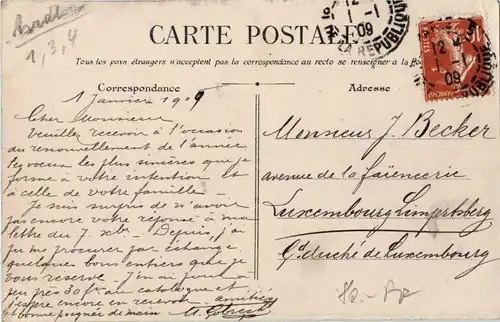 1, 3, 4
CARTE POSTALE
Tous les pays étrangers n'acceptent pas la correspondance au recto se renseigner à la Poste
Correspondance
Adresse
1 Janvier 1909
Cher Monsieur
Veuillez recevoir à l'occasion
du renouvellement de l'année
les voeux les plus sincères que je
forme à votre intention et
à celle de votre famille –
Je suis surpris de n'avoir
pas encore votre réponse à ma
lettre du 7 Xbre – Depuis, j'ai
pu me procurer par échange
quelques bons entiers que je
vous réserve – J'en ai pour à
peu près 30 frs au catalogue et
j'espère encore en recevoir. amitiés
et bonne poignée de main
Monsieur J. Becker
avenue de la faïencerie
Luxembourg Limpertsberg
Gd duché de Luxembourg
12
1 - 1
09
LA REPUBLIQUE
12
1 - 1
09